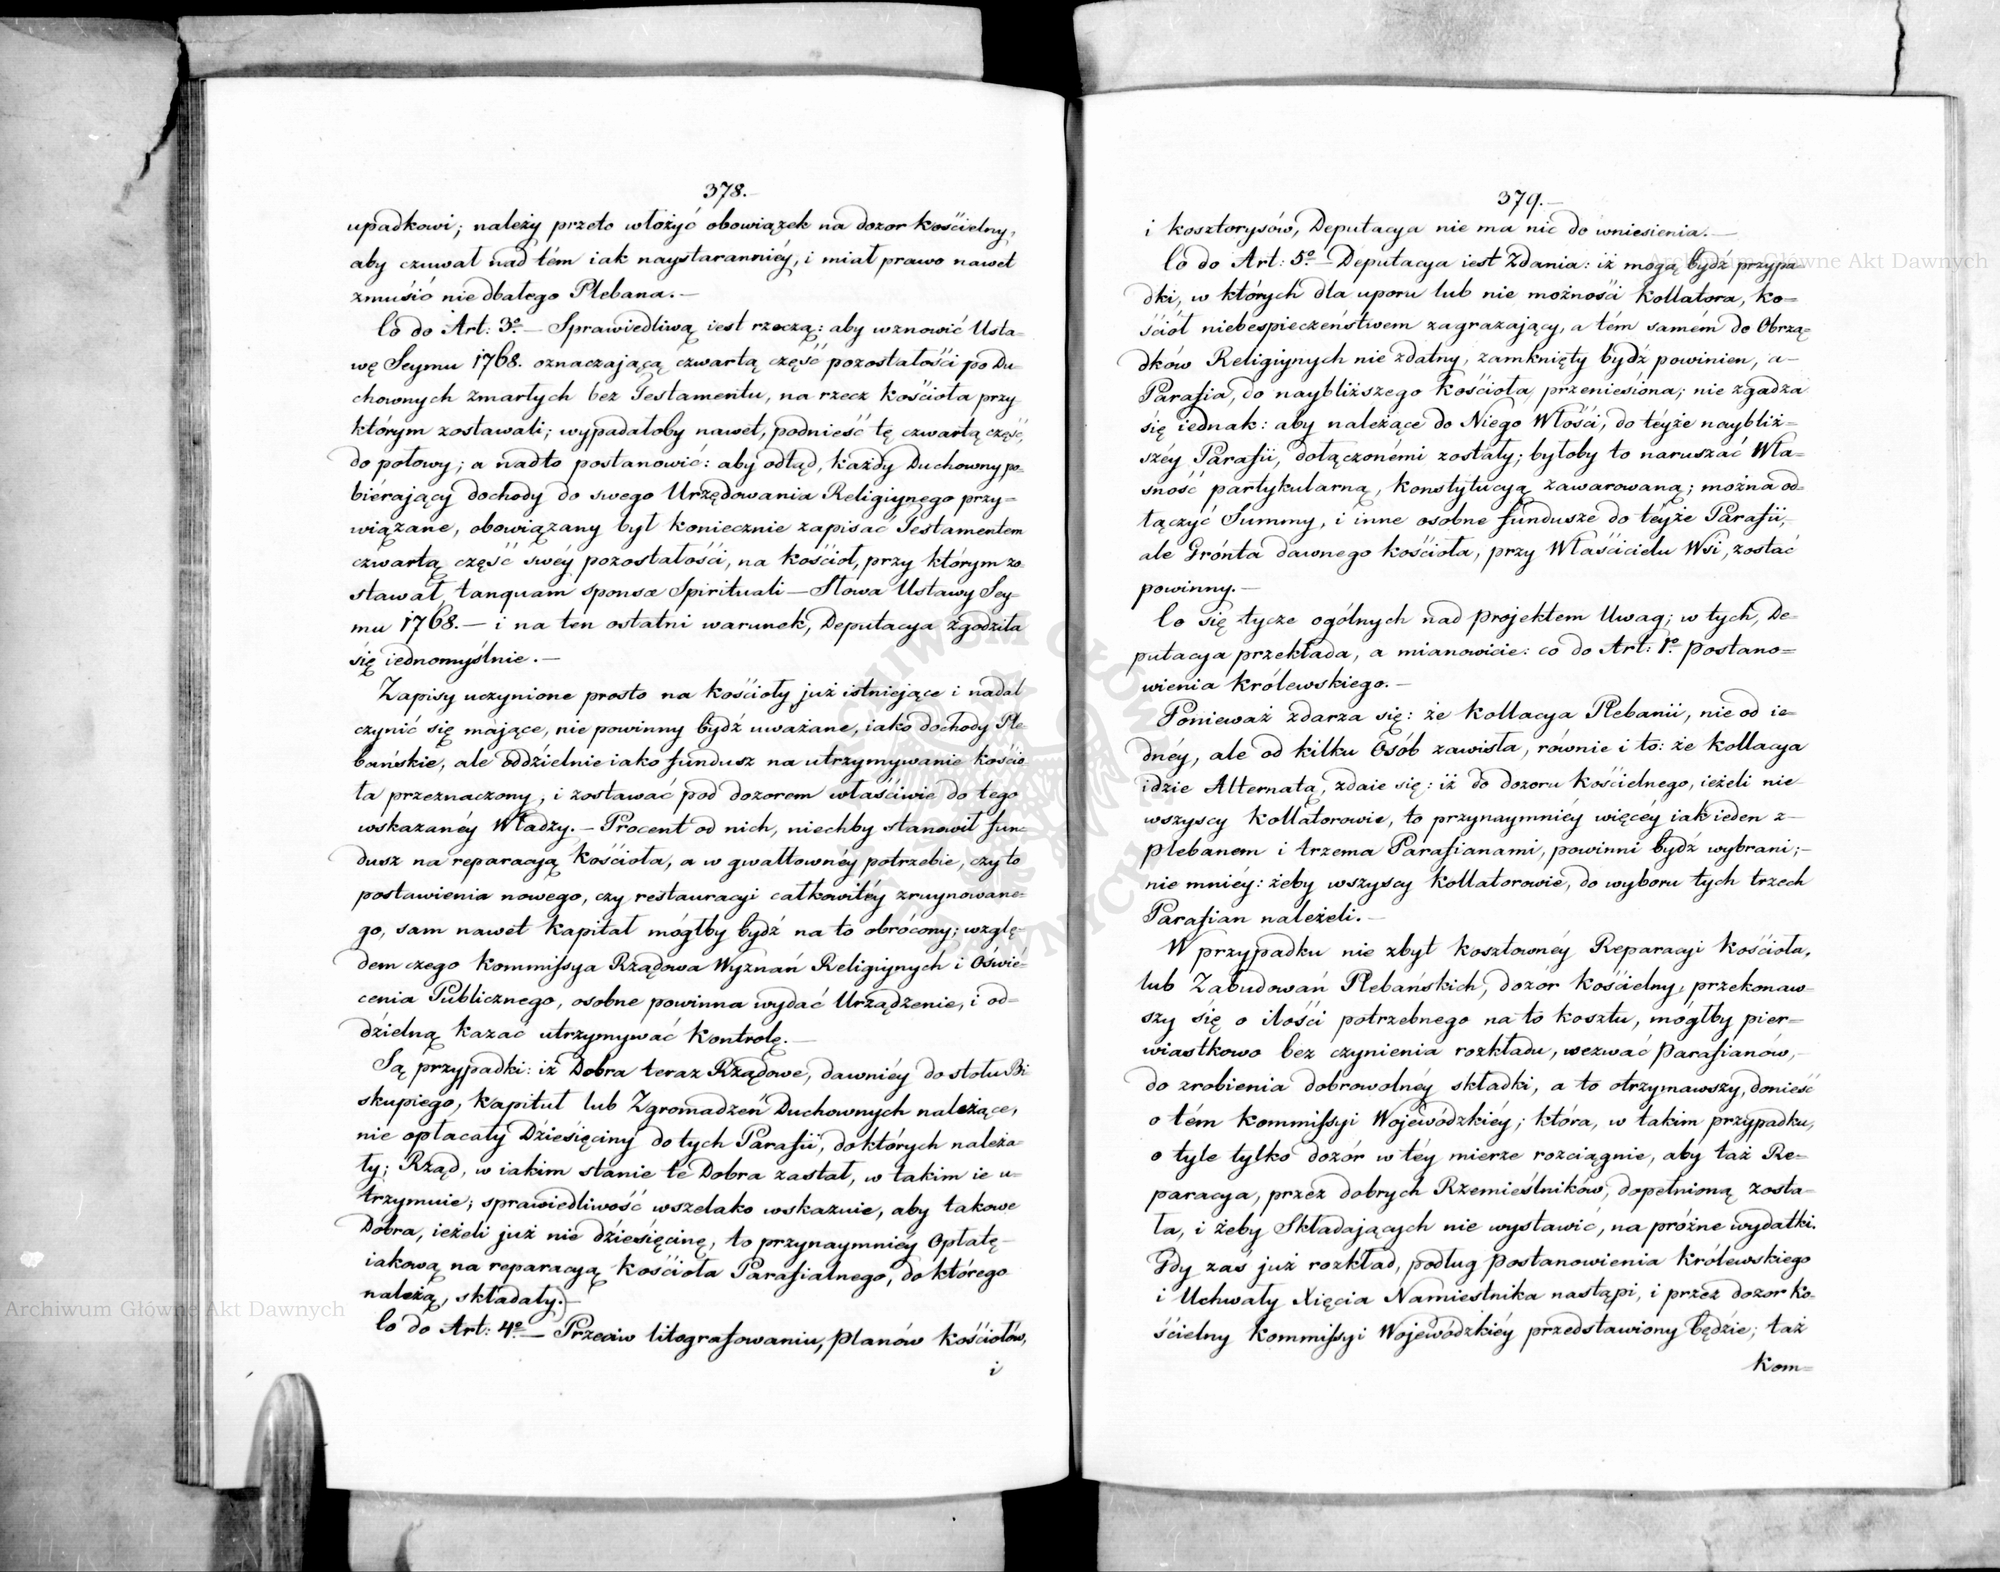 378.–
upadkowi; należy przeto włożyć obowiązek na dozor kościelny,
aby czuwał nad tém iak naystarannièy, i miał prawo nawet
zmusić niedbałego Plebana.–
Co do Art: 3º – Sprawiedliwą iest rzeczą: aby wznowić Usta-
wę Seymu 1768. oznaczaiącą czwartą część pozostałości po Du-
chownych zmarłych bez Testamentu, na rzecz kościoła przy
którym zostawali; wypadałoby nawet, podnieść tę czwartą część,
do połowy; a nadto postanowić: aby odtąd, każdy Duchowny po-
biérający dochody do swego Urzędowania Religiynego przy=
wiązane, obowiązany był koniecznie zapisać Testamentem
czwartą część swéy pozostałości, na kościoł, przy którym zo-
stawał, tanquam sponsæ Spirituali – Słowa Ustawy Sey-
mu 1768. – i na ten ostatni warunek, Deputacya zgodziła
się iednomyślnie. –
Zapisy uczynione prosto na kościoły już istniejące i nadal
czynić się mające, nie powinny bydź uważane, iako dochody Ple-
bańskie, ale oddzielnie iako fundusz na utrzymywanie kościo-
ła przeznaczony, i zostawać pod dozorem właściwie do tego
wskazanéy Władzy. – Procent od nich, niechby stanowił fun-
dusz na reparacyą kościoła, a w gwałtownéy potrzebie, czy to
postawienia nowego, czy restauracyi całkowitéy zruynowane-
go, sam nawet kapitał mógłby bydź na to obrócony; wzglę-
dem czego Kommissya Rządowa Wyznań Religiynych i Oświé-
cenia Publicznego, osobne powinna wydać Urządzenie, i od-
dzielną kazać utrzymywać kontrolę. –
Są przypadki: iż Dobra teraz Rządowe, dawniéy do stołu Bi
skupiego, Kapituł lub Zgromadzeń Duchownych należące,
nie opłacały Dziesięciny do tych Parafii, do których należa-
ły; Rząd, w iakim stanie te Dobra zastał, w takim ie u-
trzymuie; sprawiedliwość wszelako wskazuie, aby takowe
Dobra, ieżeli już nie dziesięcinę, to przynaymniéy Opłatę –
iakową na reparacyą kościoła Parafialnego, do którego
należą, składały. –
Co do Art: 4º – Przeciw litografowaniu, planów kościołów,
i
379.–
i kosztorysów, Deputacya nie ma nic do wniesienia. –
Co do Art: 5º – Deputacya iest Zdania: iż mogą bydź przypa-
dki, w których dla uporu lub nie możności Kollatora, ko=
ściół niebespieczeństwem zagrażający, a tém samém do Obrzą-
dków Religiynych nie zdatny, zamknięty bydź powinien, a –
Parafia, do naybliższego kościoła, przeniesiona; nie zgadza
się iednak: aby należące do Niego Włości, do téyże naybliż-
széy Parafii, dołączonémi zostały; byłoby to naruszać Wła-
sność partykularną, konstytucyą zawarowaną; można od-
łączyć Summy, i inne osobne fundusze do téyże Parafii, –
ale Grónta dawnego kościoła, przy Właścicielu Wsi, zostać
powinny. –
Co się tycze ogólnych nad projektem Uwag; w tych, De-
putacya przekłada, a mianowicie: co do Art: 1º Postano=
wienia Królewskiego. –
Ponieważ zdarza się: że kollacya Plebanii, nie od ie-
dnéy, ale od kilku Osób zawisła, równie i to: że kollacya
idzie Alternatą, zdaie się: iż do dozoru kościelnego, ieżeli nie
wszyscy kollatorowie, to przynaymniéy więcéy iak ieden z –
plebanem i trzema Parafianami, powinni bydź wybrani; –
nie mniéy: żeby wszyscy kollatorowie, do wyboru tych trzech
Parafian należeli. –
W przypadku nie zbyt kosztownéy Reparacyi kościoła,
lub Zabudowań Plebańskich, dozór kościelny, przekonaw-
szy się o ilości potrzebnego na to kosztu, mógłby pier-
wiastkowo bez czynienia rozkładu, wezwać Parafianów, –
do zrobienia dobrowolnéy składki, a to otrzymawszy, donieść
o tém Kommissyi Wojewódzkiéy; która, w takim przypadku,
o tyle tylko dozór w téy mierze rozciągnie, aby taż Re-
paracya, przez dobrych Rzemieślników, dopełnioną zosta-
ła, i żeby Składających nie wystawić, na próżne wydatki.
Gdy zaś już rozkład, podług Postanowienia Królewskiego
i Uchwały Xięcia Namiestnika nastąpi, i przez dozor Ko-
ścielny Kommissyi Wojewódzkiéy przedstawiony będzie; taż
Kom=
Archiwum Główne Akt Dawnych
Archiwum Główne Akt Dawnych